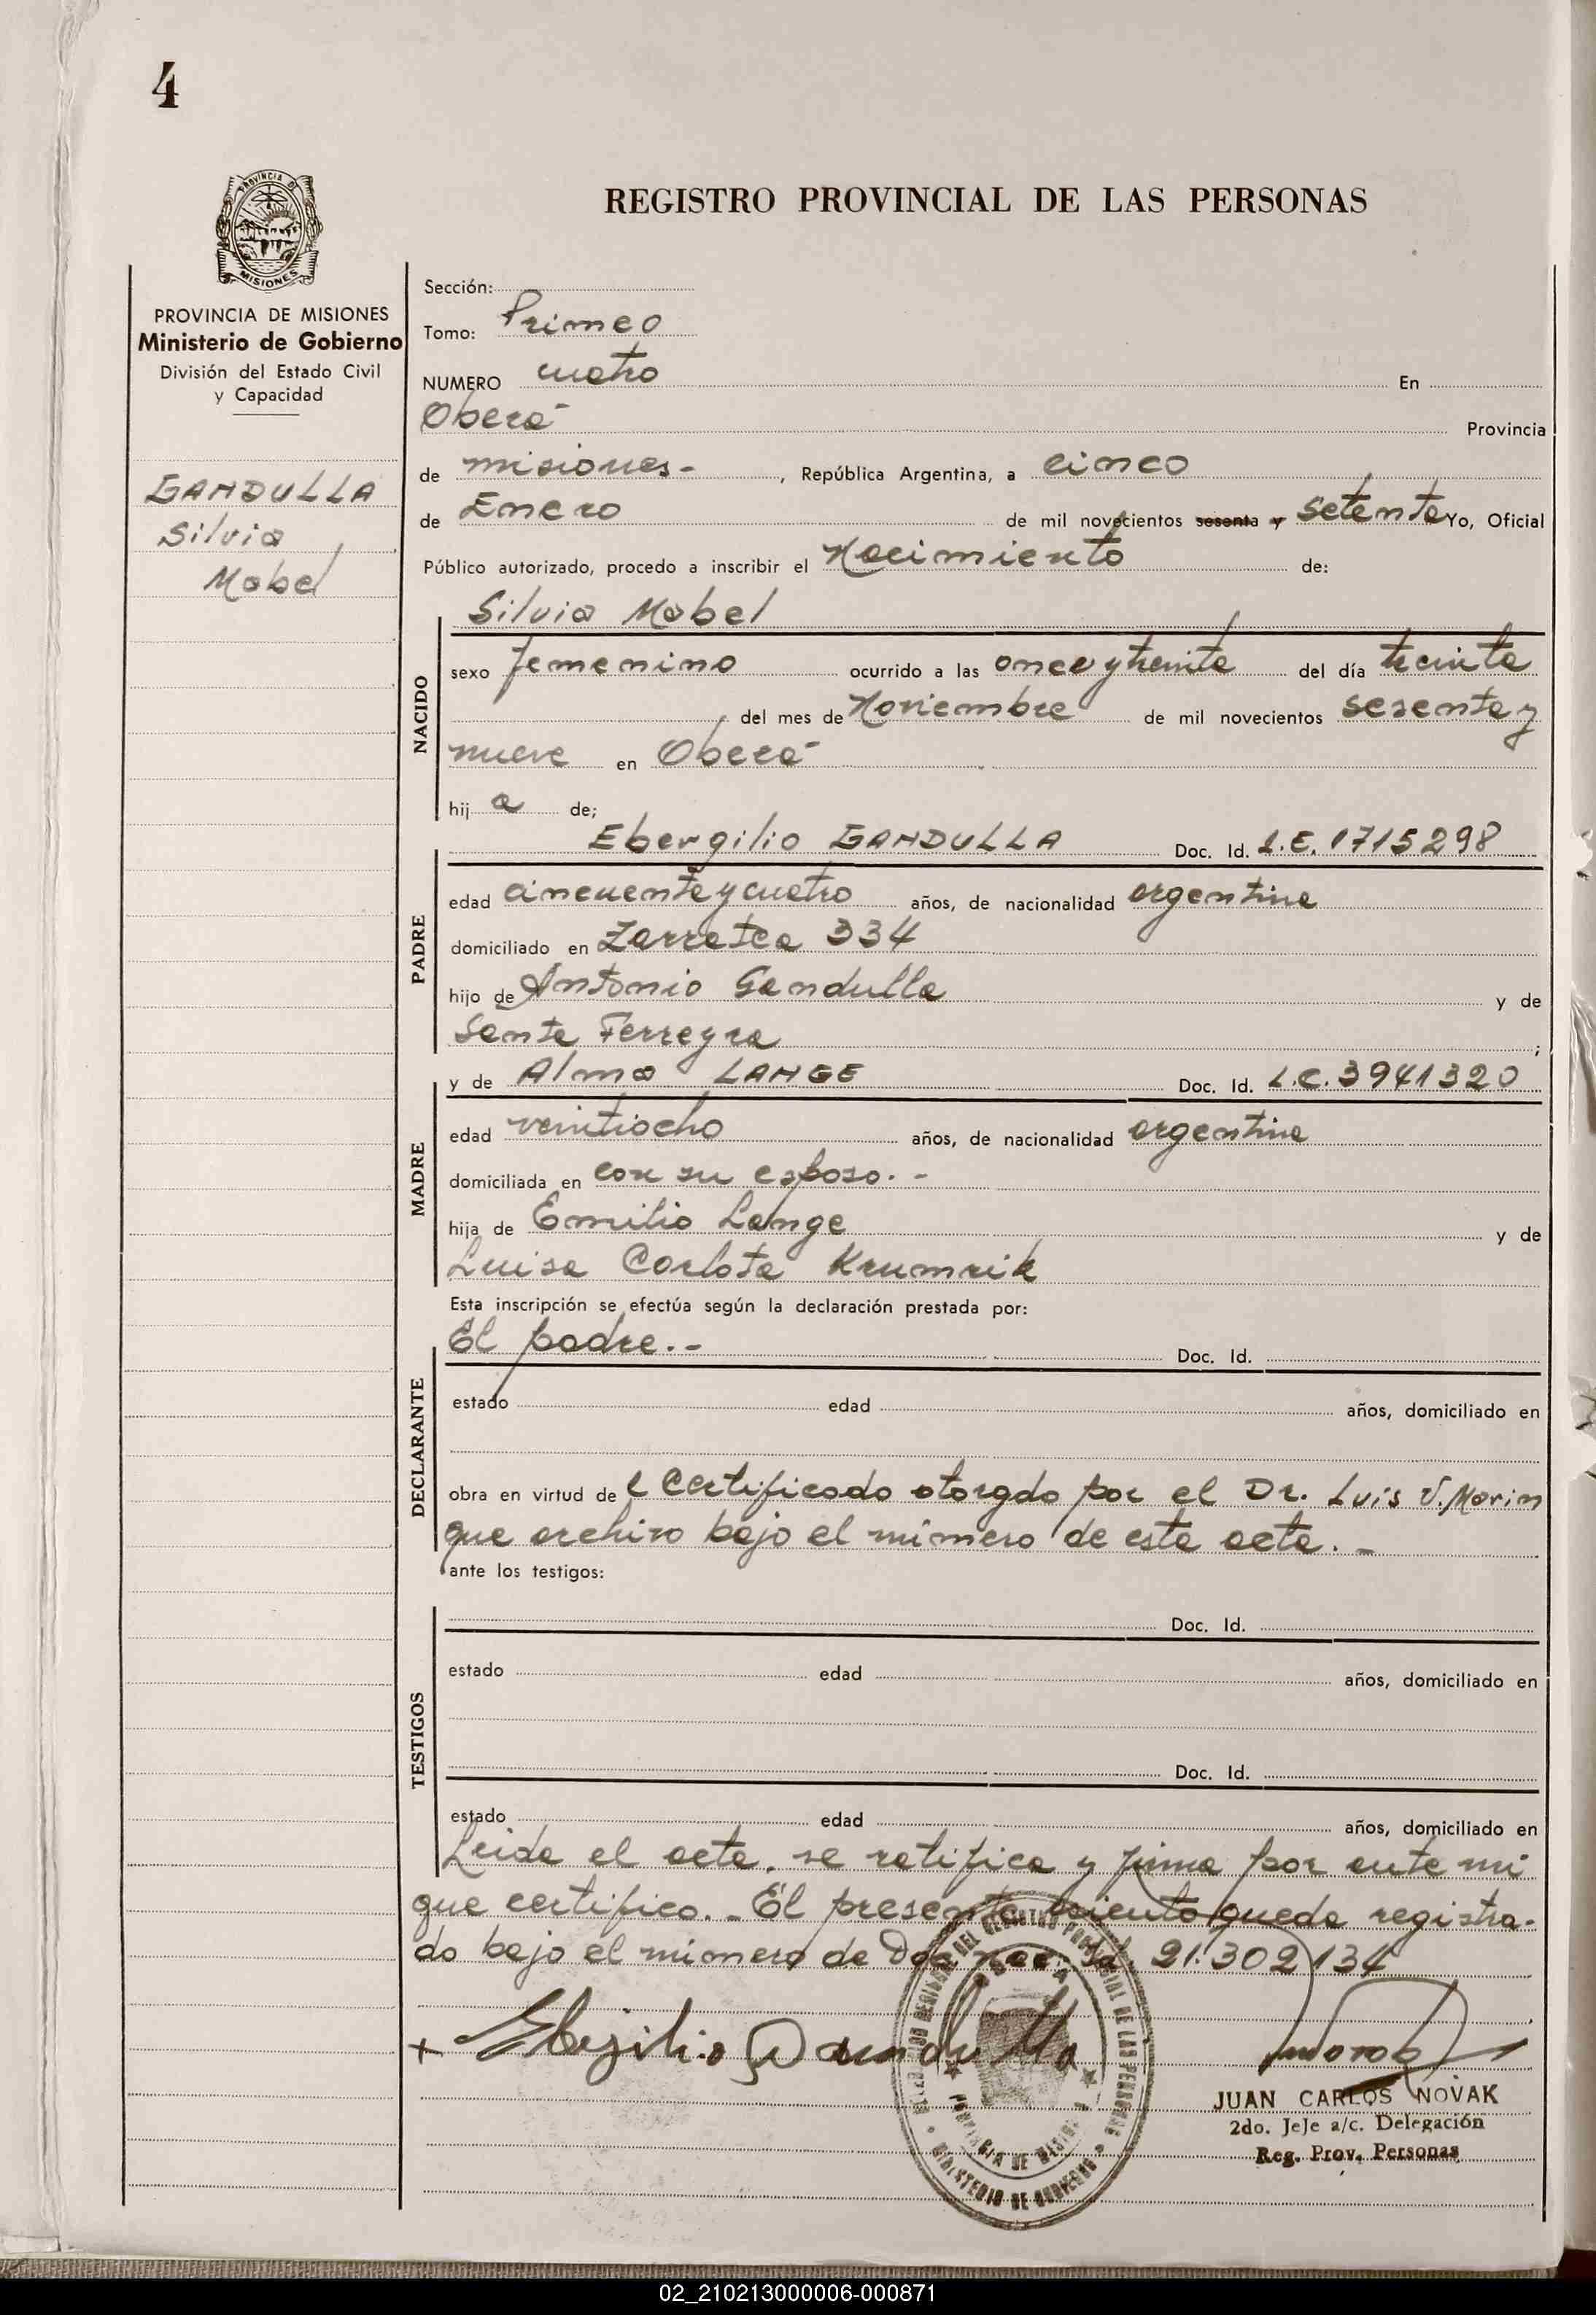 4
REGISTRO PROVINCIAL DE LAS PERSONAS
PROVINCIA DE
MISIONES
PROVINCIA DE MISIONES
Ministerio de Gobierno
División del Estado Civil
y Capacidad
GANDULLA
Silvia
Mabel
Sección:
Tomo: Primeo
NUMERO cuatro En
Oberá Provincia
de misiones.- , República Argentina, a cinco
de Enero de mil novecientos sesenta y setenta Yo, Oficial
Público autorizado, procedo a inscribir el Nacimiento de:
Silvia Mabel
NACIDO
sexo femenino ocurrido a las once y treinta del día treinta
del mes de Noviembre de mil novecientos sesenta y
nueve en Oberá
hij a de;
Ebergilio GANDULLA Doc. Id. L.E. 1715298
PADRE
edad cincuenta y cuatro años, de nacionalidad argentina
domiciliado en Zarratea 334
hijo de Antonio Gandulla y de
Santa Ferreyra ;
y de Alma LANGE Doc. Id. L.C. 3941320
MADRE
edad veintiocho años, de nacionalidad argentina
domiciliada en con su esposo.-
hija de Emilio Lange y de
Luisa Carlota Krumrik
Esta inscripción se efectúa según la declaración prestada por:
El padre.- Doc. Id.
DECLARANTE
estado edad años, domiciliado en
obra en virtud de l Certificado otorgdo por el Dr. Luis V. Marin
que archivo bajo el número de esta acta.-
ante los testigos:
TESTIGOS
Doc. Id.
estado edad años, domiciliado en
Doc. Id.
estado edad años, domiciliado en
Leida el acta, se ratifica y firma por ante mi
que certifico.- El presente asiento queda registra-
do bajo el número de Doc. nac. Id. 21.302134
+ Ebergilio Gandulla
MINISTERIO DE GOBIERNO
PROVINCIA DE MISIONES
JUAN CARLOS NOVAK
2do. JeJe a/c. Delegación
Reg. Prov. Personas
02_210213000006-000871